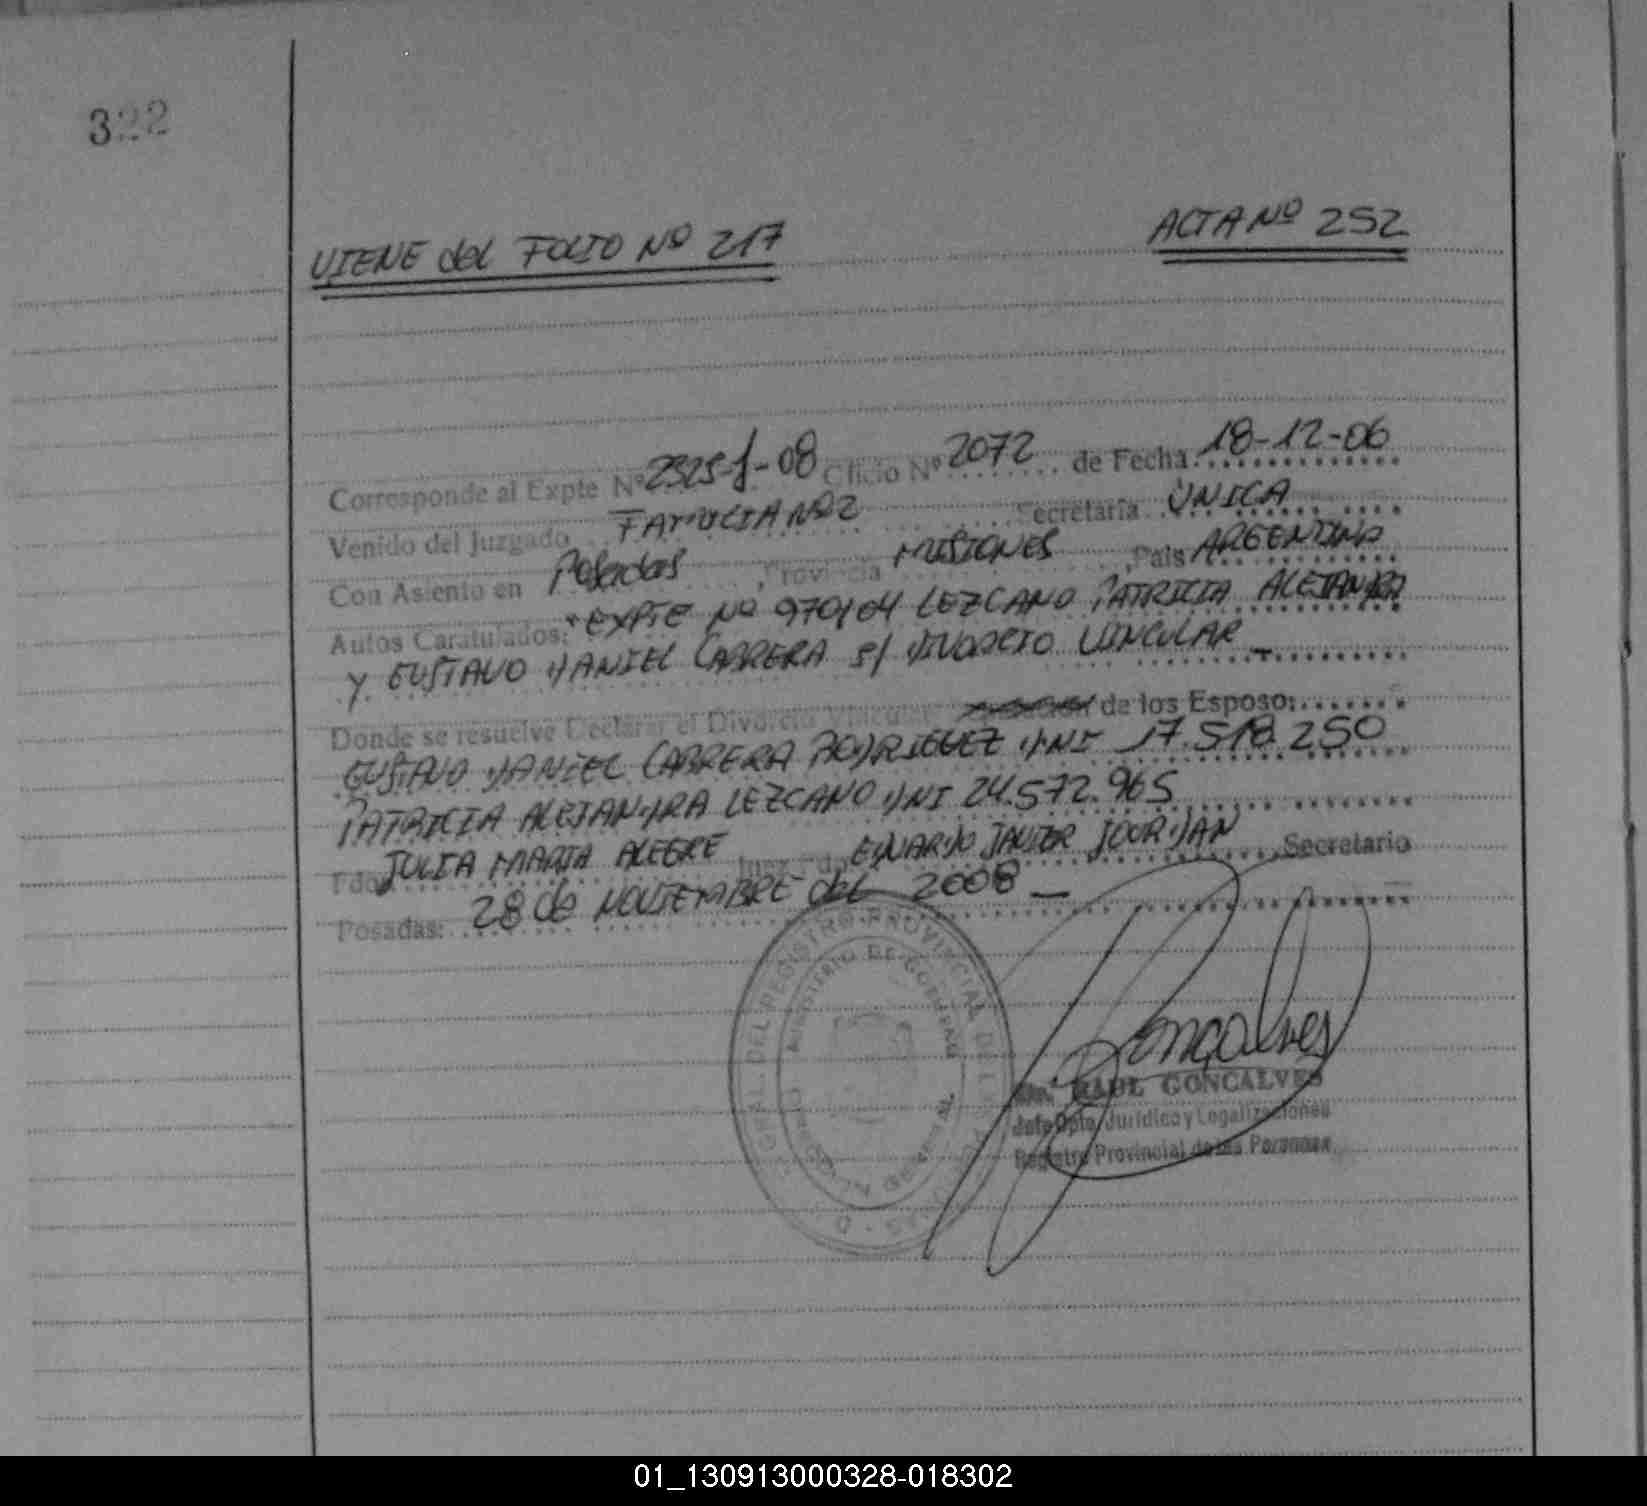 322
VIENE del FOLIO Nº 217
ACTA Nº 252
Corresponde al Expte Nº 2325-J-08 Oficio Nº 2072 de Fecha 18-12-06
Venido del Juzgado FAMILIA Nº 2 Secretaría UNICA
Con Asiento en Posadas, Provincia MISIONES, País ARGENTINA
Autos Caratulados: "EXPTE Nº 970/04 LEZCANO PATRICIA ALEJANDRA
Y GUSTAVO DANIEL CABRERA S/ DIVORCIO VINCULAR
Donde se resuelve Declarar el Divorcio Vincular de los Esposo:
GUSTAVO DANIEL CABRERA RODRIGUEZ DNI 17.518.250
PATRICIA ALEJANDRA LEZCANO DNI 24.572.965
Fdo. JULIA MARIA ALEGRE Juez Fdo EDUARDO JAVIER JOURDAN Secretario
Posadas: 28 de NOVIEMBRE del 2008
GRAL. DEL REGISTRO PROVINCIAL DE LAS PERSONAS
MINISTERIO DE GOBIERNO
Gonçalves
RAUL GONCALVES
Jefe Dpto. Jurídico y Legalizaciones
Registro Provincial de las Personas
01_130913000328-018302